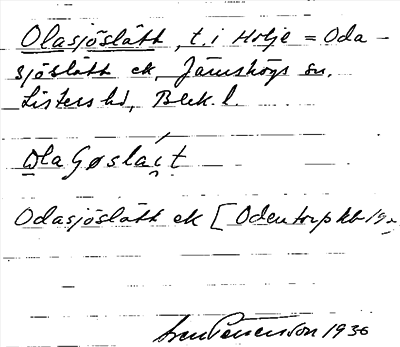 Olasjöslätt, t. i Holje = Oda-
sjöslätt ek, Jämshögs sn.
Listers hd, Blek. l.
Ola Gøslaít
Odasjöslätt ek [Odentorp kb 19
Petterson 1930